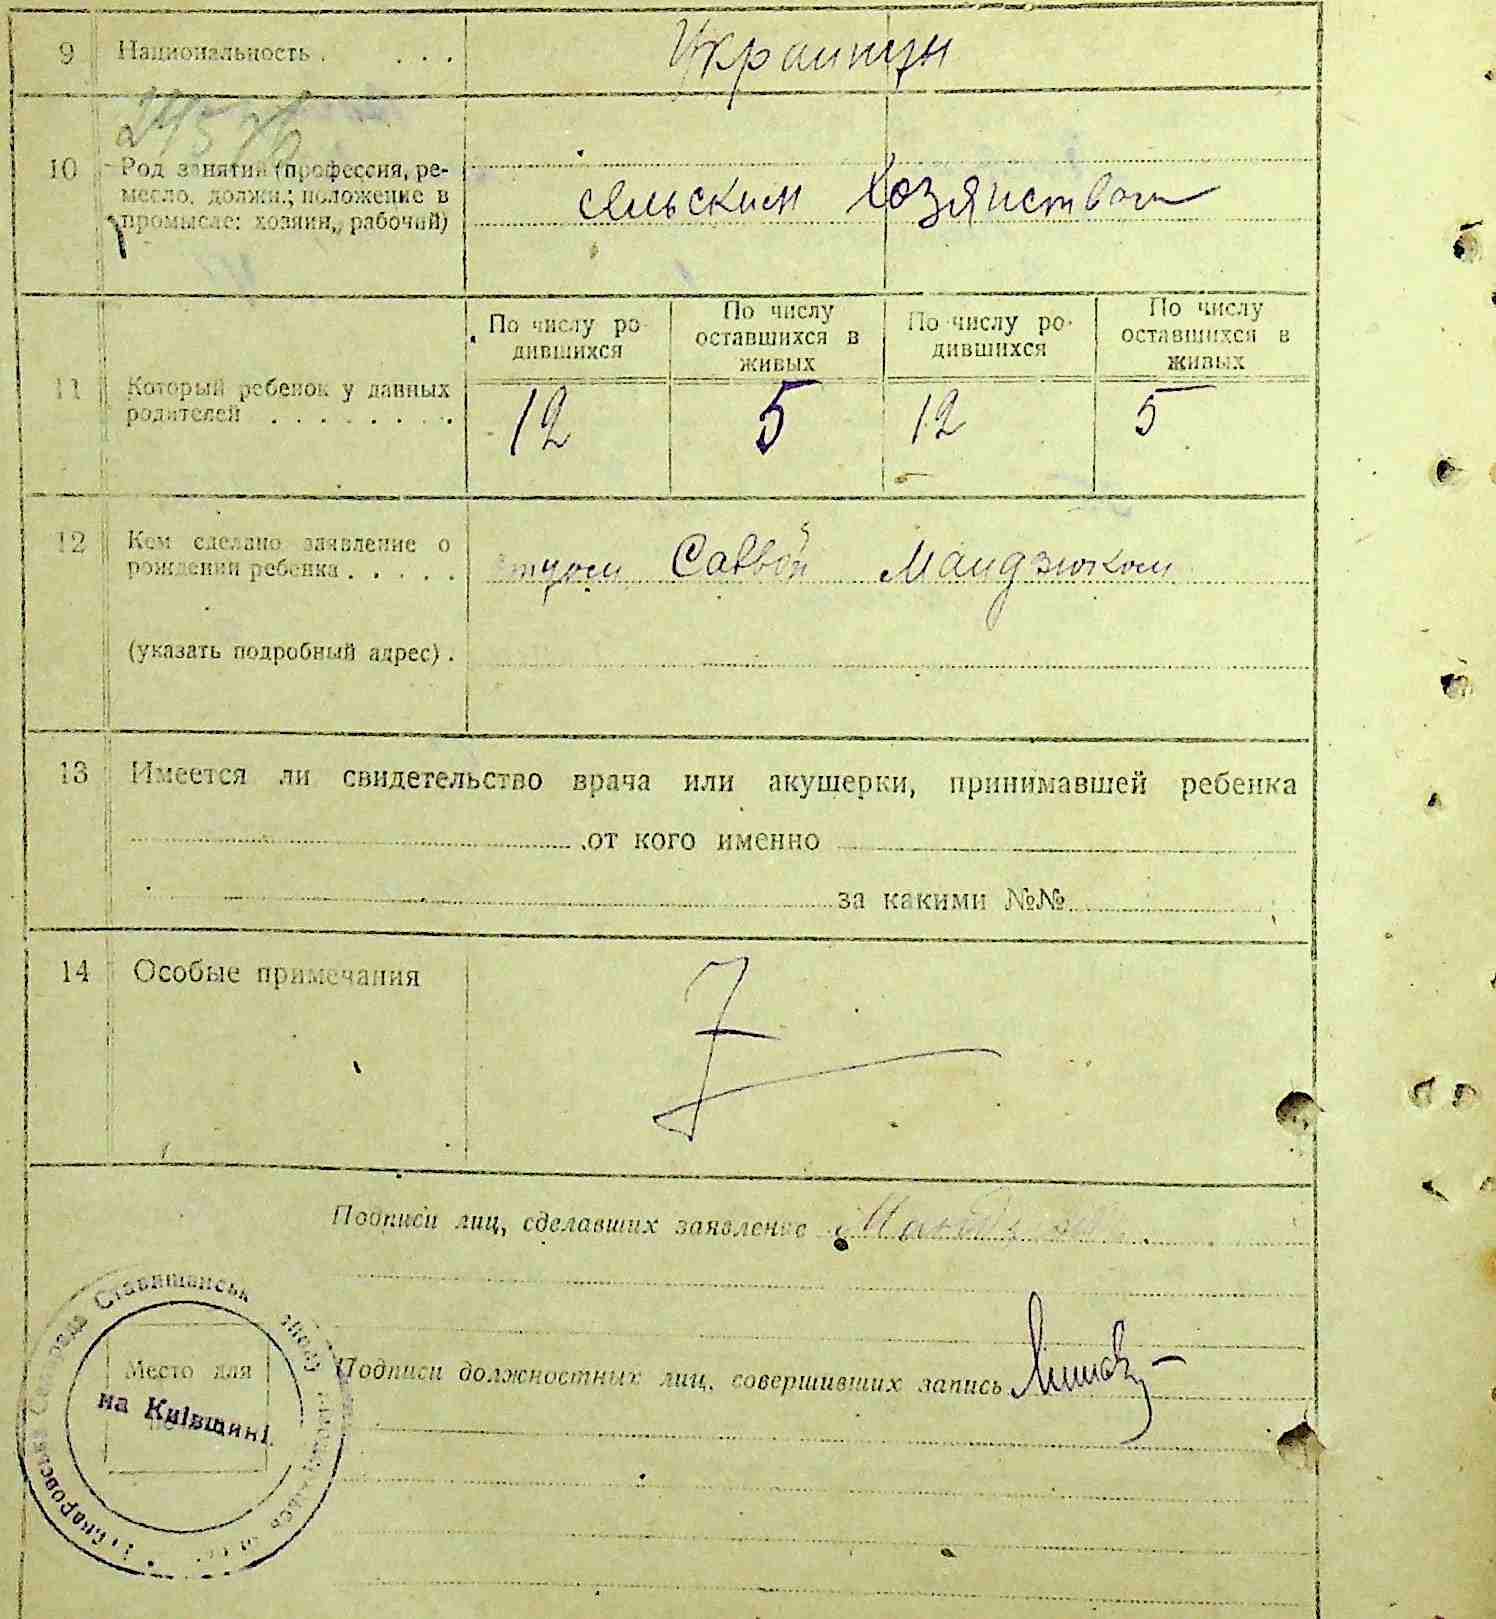 9 Национальность . . . . Украинцы
245
10 Род занятий (профессия, ре-
месло, должн.; положение в
промысле: хозяин, рабочий)
сельским хозяиством
По числу ро-
дившихся
По числу
оставшихся в
живых
По числу ро-
дившихся
По числу
оставшихся в
живых
11 Который ребенок у данных
родителей . . . . . . . .
12 5 12 5
12 Кем сделано заявление о
рождении ребенка . . . . .
отцом Мандзюком
(указать подробный адрес) .
13 Имеется ли свидетельство врача или акушерки, принимавшей ребенка
от кого именно
за какими №№
14 Особые примечания
Подписи лиц, сделавших заявление
Подписи должностных лиц, совершивших запись
Место для
на Київщині
Ставищанськ